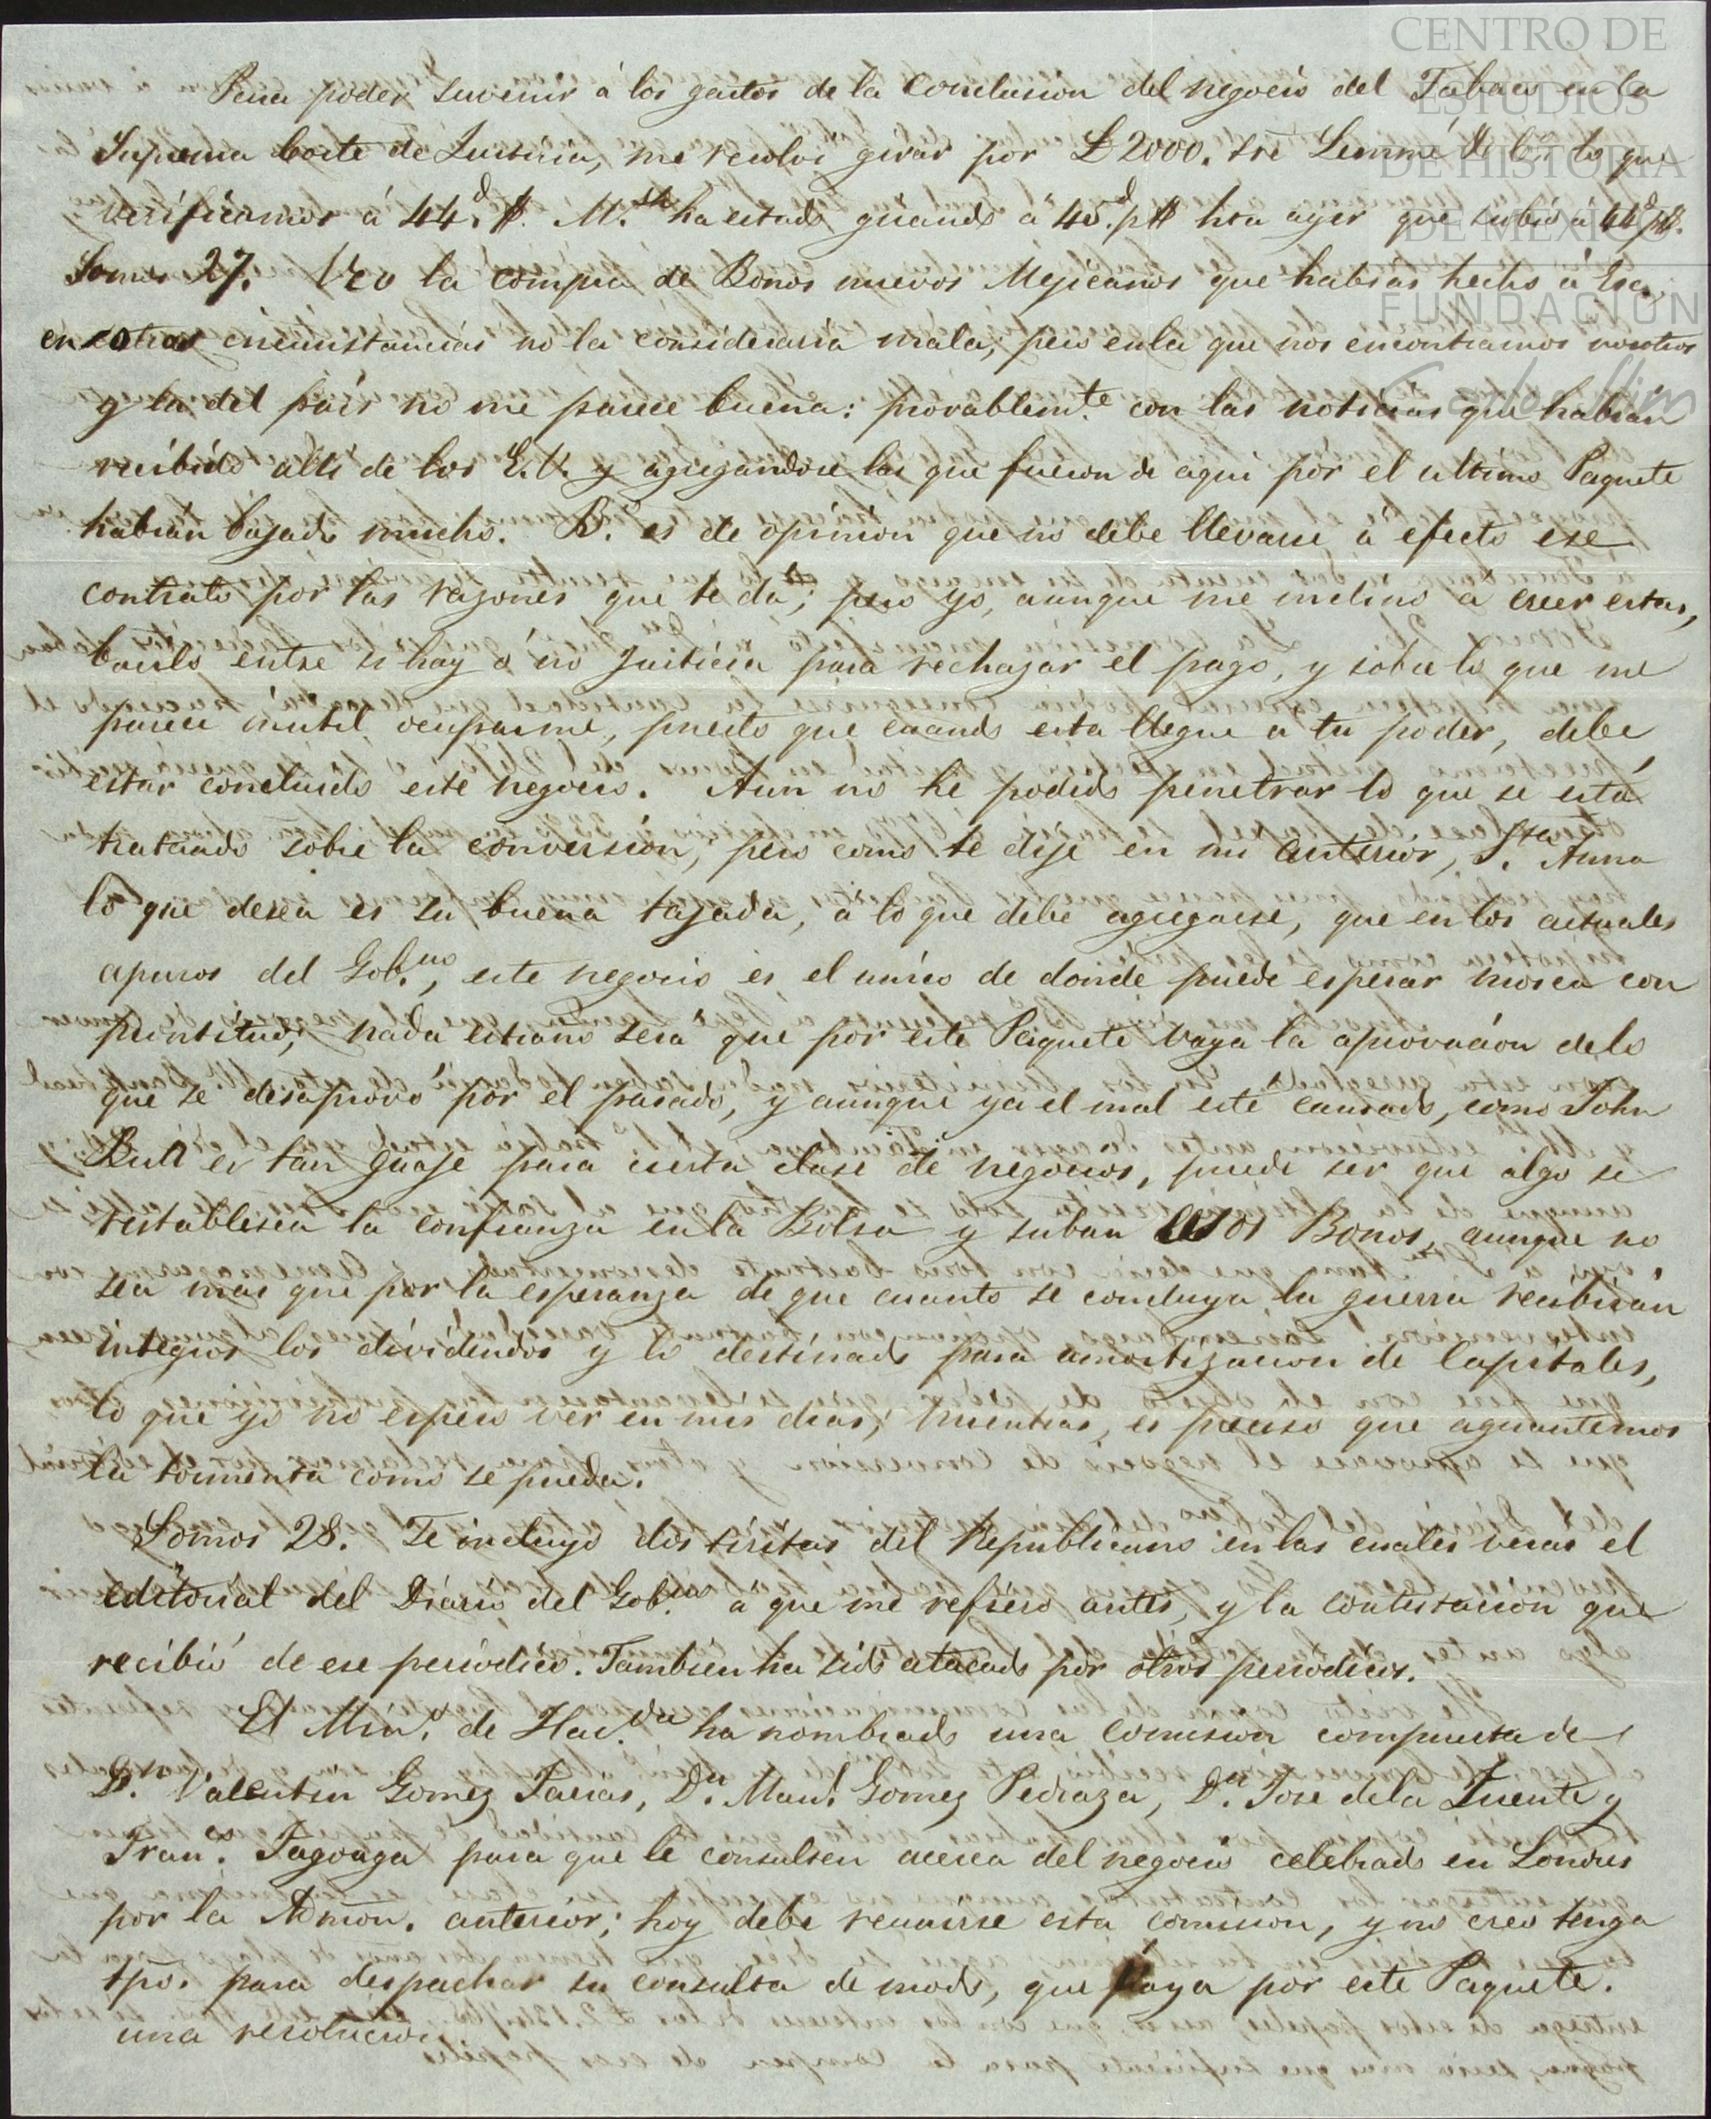 CENTRO DE
ESTUDIOS
DE HISTORIA
DE MEXICO
FUNDACIÓN
Para poder suvenir á los gastos de la Conclusion del negocio del Tabaco en la
Suprema Corte de Justicia, me resolví girar por £2000. sre Lemmé lo que
verificamos á 44d. $. M. ha estado girando á 45d. p$ hta ayer que subió á 44d p$.
Somos 27. Veo la compra de Bonos nuevos Mejicanos que habias hecho á Esc.
en otras circunstancias no la consideraria mala, pero en la que nos encontramos nosotros
y la del país no me parece buena: provablemte. con las noticias que habrán
recibido allí de los E.U. y agregandose las que fueron de aqui por el ultimo Paquete
habrán bajado mucho. B. es de opinion que no debe llevarse á efecto ese
contrato por las razones que te dá; pero yo, aunque me inclino á creer estas,
bacilo entre si hay ó no Justicia para rechazar el pago, y sobre lo que me
parece inutil ocuparme, puesto que cuando esta llegue a tu poder, debe
estar concluido este negocio. Aun no he podido penetrar lo que se está
tratando sobre la conversion, pero como te dije en mi anterior, Sta. Anna
lo que desea es su buena tajada, á lo que debe agregarse, que en los actuales
apuros del Gobno., este negocio es el unico de donde puede esperar mosca con
prontitud; nada estraño será que por este Paquete vaya la aprovacion de lo
que se desaprovó por el pasado, y aunque ya el mal esté causado, como John
Bull es tan guaje para cierta clase de negocios, puede ser que algo se
restablesca la confianza en la Bolsa y suban esos Bonos, aunque no
sea mas que por la esperanza de que cuanto se concluya la guerra recibirán
integros los dividendos y lo destinado para amortizacion de Capitales,
lo que yo no espero ver en mis dias; mientras, es preciso que aguantemos
la tormenta como se pueda.
Somos 28. Te incluyo dos tiritas del Republicano en las cuales veras el
editorial del Diario del Gobno. á que me refiero antes, y la contestacion que
recibió de ese periodico. Tambien ha sido atacado por otros periodicos.
El Mino. de Hacda. ha nombrado una comision compuesta de
Dn. Valentin Gomez Farias, Dn. Manl. Gomez Pedraza, Dn. Jose de la Fuente y
Franco. Fagoaga para que le consulten acerca del negocio celebrado en Londres
por la Admon. anterior; hoy debe reunirse esta comision, y no creo tenga
tpo. para despachar su consulta de modo, que vaya por este Paquete.
una resolucion.